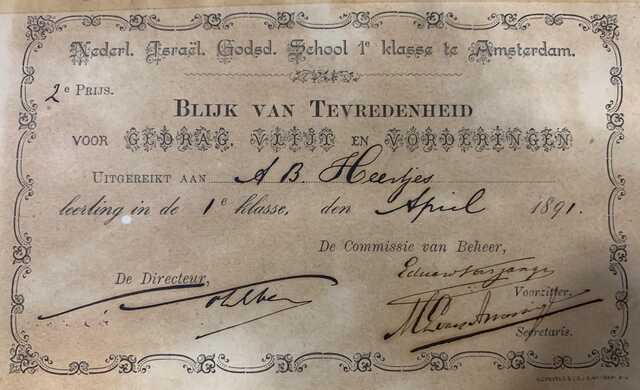 Nederl. Israël. Godsd. School 1e klasse te Amsterdam.
2e Prijs.
Blijk van Tevredenheid
voor Gedrag, Vlijt en Vorderingen
Uitgereikt aan A B. Heertjes
leerling in de 1e klasse, den April 1891.
De Commissie van Beheer,
De Directeur,
Voorzitter.
Secretaris.